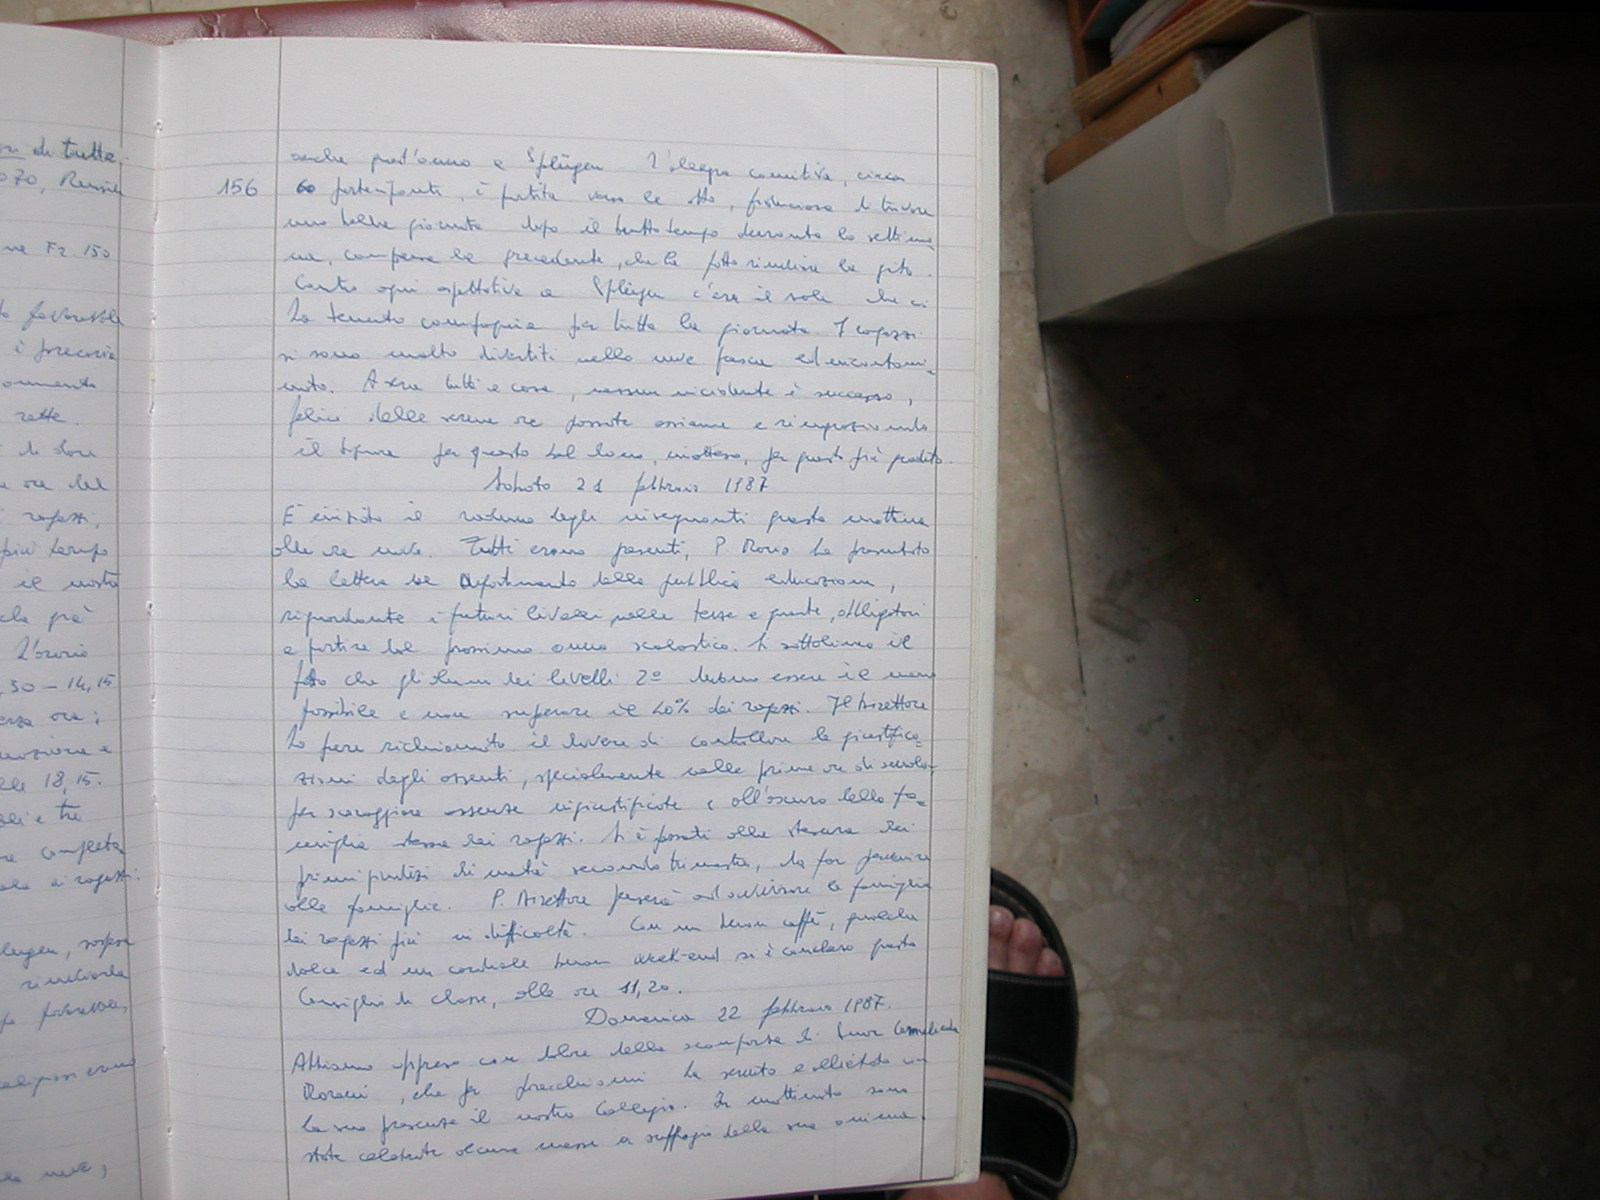 di tutte
070, Russia
ne Fr. 150
favorevole
è precaria
rette.
di dove
ore del
ragazzi,
più tempo
il nostro
che già
L'orario
,30 – 14,15
ore ;
alle 18,15.
e tre
completa
ai ragazzi.
sospesa
rimandata
favorevole,
neve,
156
anche quest'anno a Splügen L'allegra comitiva, circa
60 partecipanti, è partita verso le otto, fiduciosa di trovare
una bella giornata dopo il brutto tempo durante la settima
na, compresa la precedente, che ha fatto rinviare la gita.
Contro ogni aspettativa a Splügen c'era il sole che ci
ha tenuto compagnia per tutta la giornata. I ragazzi
si sono molto divertiti nella neve fresca ed incontami-
nata. A sera tutti a casa, nessun incidente è successo,
felici delle serene ore passate assieme e ringraziando
il Signore per questo bel dono, inatteso, per questo più gradito.
Sabato 21 febbraio 1987
E' iniziato il raduno degli insegnanti questa mattina
alle ore nove. Tutti erano presenti, P. ha presentato
la lettera del dipartimento della pubblica educazione,
riguardante i futuri livelli nelle terze e quarte, obbligatori
a partire dal prossimo anno scolastico. Si sottolinea il
fatto che gli alunni dei livelli 2° devono essere il meno
possibile e non superare il 20% dei ragazzi. Il Direttore
ha pure richiamato il dovere di controllare le giustifica-
zioni degli assenti, specialmente nelle prime ore di scuola,
per scoraggiare assenze ingiustificate e all'oscuro della fa-
miglia stessa dei ragazzi. Si è passati alla stesura dei
primi giudizi di metà secondo trimestre, da far pervenire
alle famiglie. P. Direttore penserà ad avvisare le famiglie
dei ragazzi più in difficoltà. Con un buon caffè, qualche
dolce ed un cordiale buon week-end si è concluso questo
Consiglio di classe, alle ore 11,20.
Domenica 22 febbraio 1987.
Abbiamo appreso con dolore della scomparsa di Suor
, che per parecchi anni ha servito e allietato con
la sua presenza il nostro Collegio. In mattinata sono
state celebrate alcune messe a suffragio della sua anima.